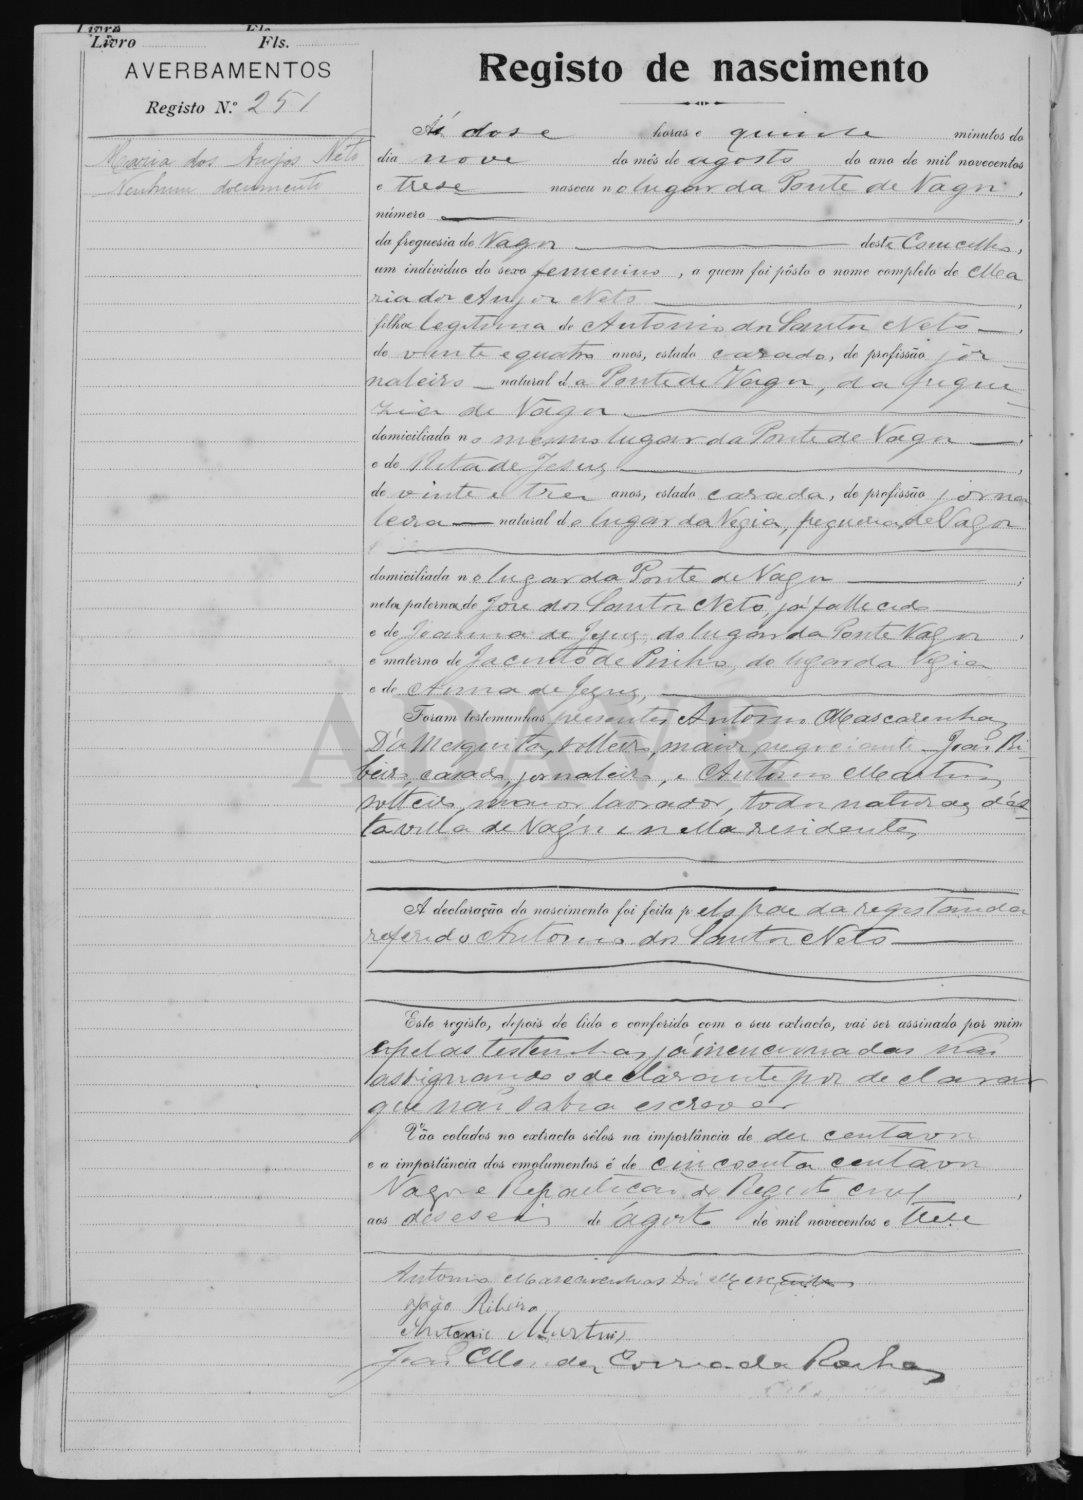 Livro Fls.
Livro Fls.
AVERBAMENTOS
Registo N.º 251
Maria dos Anjos Neto
Nenhum documento
Registo de nascimento
Ás dose horas e quinse minutos do
dia nove do mês de agosto do ano de mil novecentos
e trese nasceu no lugar da Ponte de Vagos,
número
da freguesia de Vagos deste Concelho,
um individuo do sexo femenino, a quem foi pôsto o nome completo de Ma
ria dos Anjos Neto
filha legitima de Antonio dos Santos Neto
de vinte e quatro anos, estado casado, de profissão jor
naleiro natural da Ponte de Vagos, da fregue
zia de Vagos
domiciliado no mesmo lugar da Ponte de Vagos
e de Rita de Jesus
de vinte e tres anos, estado casada, de profissão jorna
leira natural do lugar da Vegia, freguesia de Vagos
domiciliada no lugar da Ponte de Vagos
neta paterna de José dos Santos Neto, já fallecido
e de Joanna de Jesus, do lugar da Ponte Vagos
e materno de Jacinto de Pinho, do lugar da Vegia
e de Anna de Jesus,
Foram testemunhas presentes Antonio Mascarenhas
D'a Mesquita, solteiro, maior, negociante João Ri
beiro, casado, jornaleiro, e Antonio Martins
solteiro, maior lavrador, todos naturaes d'es
ta villa de Vagos e nella residentes
A declaração do nascimento foi feita pelo pae da registanda
referido Antonio dos Santos Neto
Este registo, depois de lido e conferido com o seu extracto, vai ser assinado por mim
e pelas testemunhas já mencionadas não
assignando o declarante por declarar
que não sabia escrever
Vão colados no extracto sêlos na importância de dez centavos
e a importância dos emolumentos é de cincoenta centavos
Vagos e Repartição do Registo civil,
aos deseseis de ágosto de mil novecentos e trese
Antonio Mascarenhas Da Mesquita
João Ribeiro
Antonio Martins
João Mendes Correia da Rocha
ADAVR